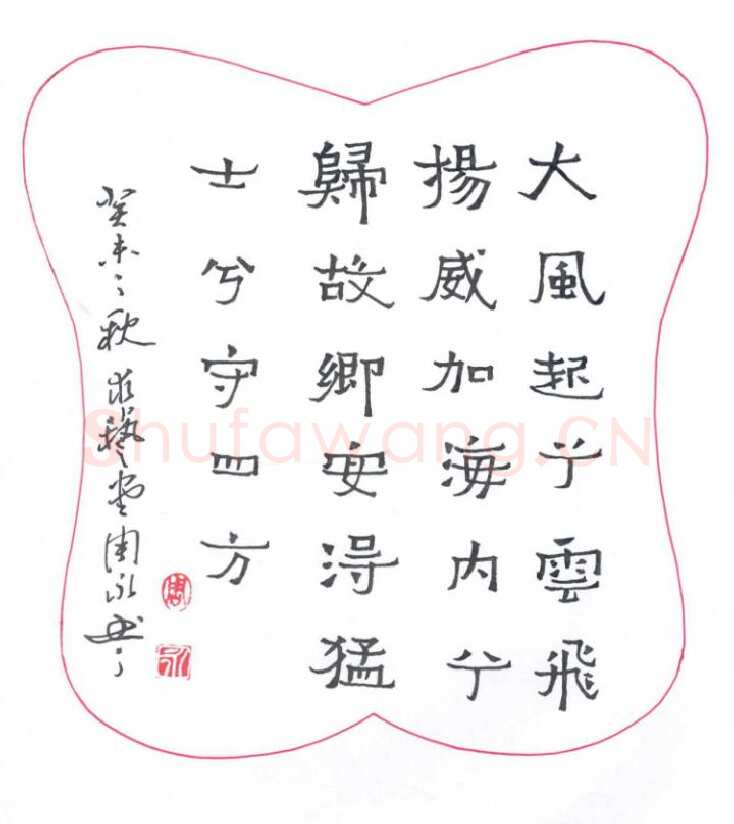 大風起兮雲飛
揚威加海内兮
歸故鄉安得猛
士兮守四方
癸未之秋求藝堂周永書
周
永
Shufawang.CN